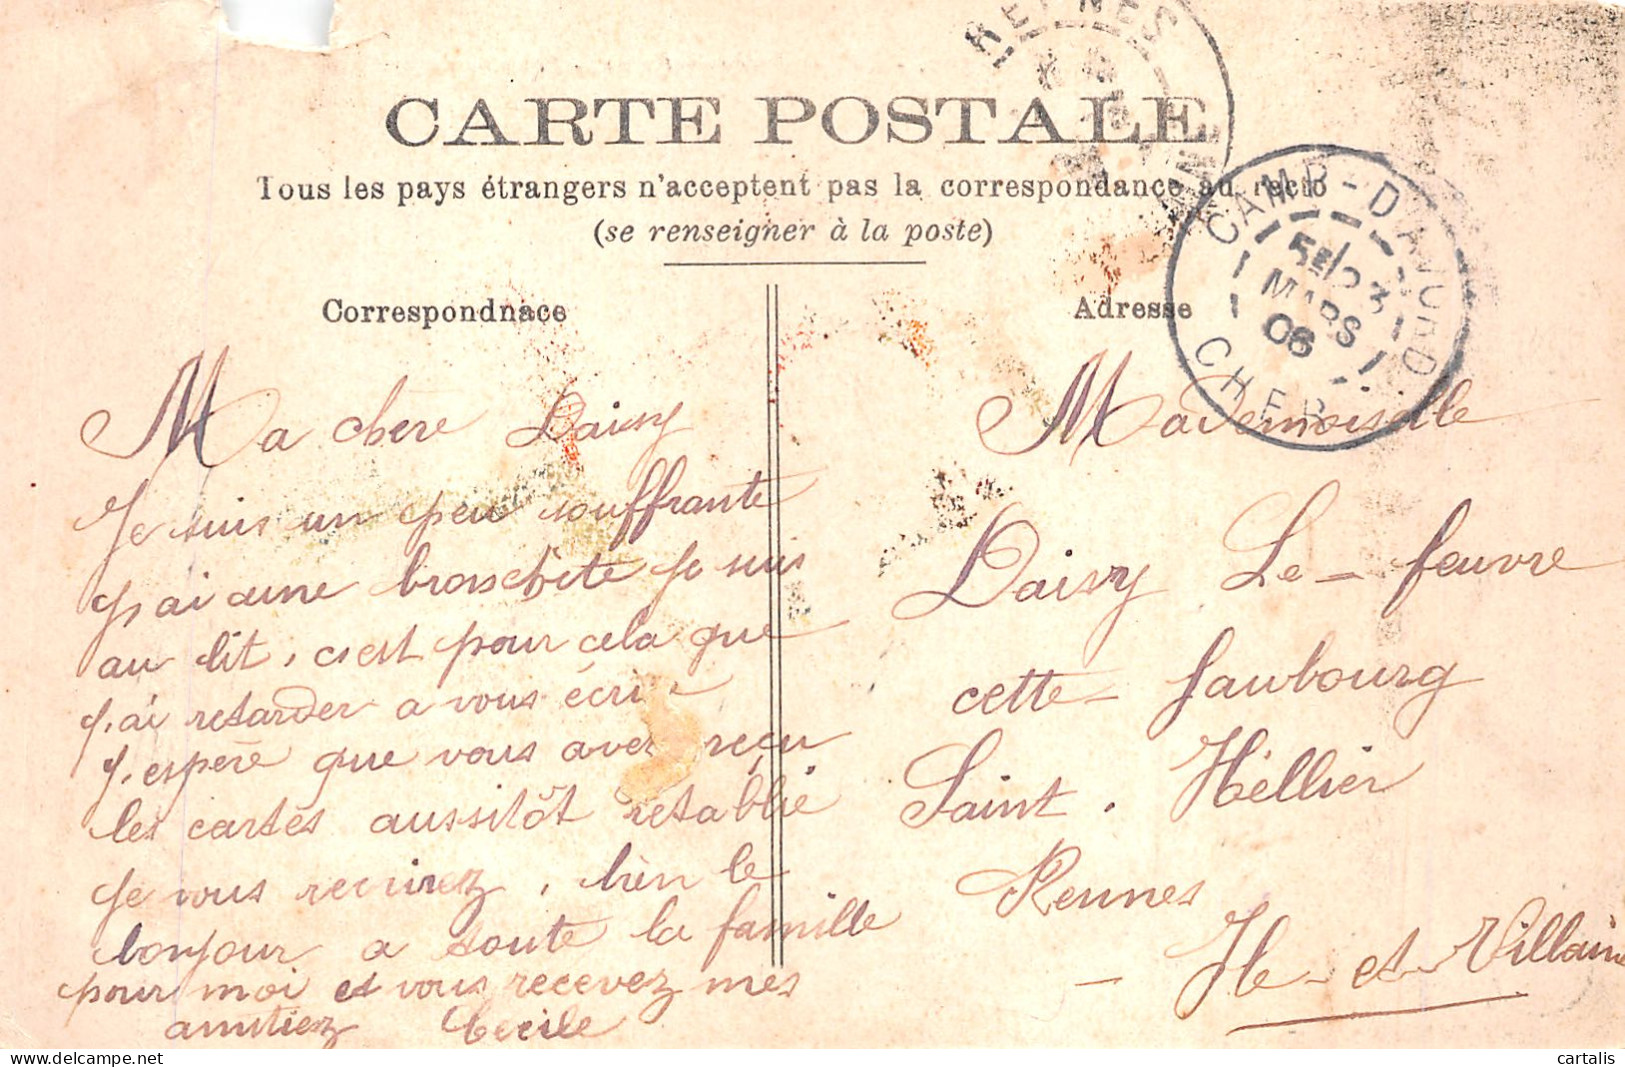 CARTE POSTALE
Tous les pays étrangers n'acceptent pas la correspondance au recto
(se renseigner à la poste)
Correspondnace
Ma chère Daisy
Je suis un peu souffrante
j'ai une bronschite je suis
au lit, c'est pour cela que
j'ai retarder a vous écrire
j'espère que vous avez reçu
les cartes aussitôt retablie
je vous recrirez, bien le
bonjour a toute la famille
pour moi et vous recevez mes
amitiez Cecile
Adresse
Mademoiselle
Daisy Le-feuvre
cette faubourg
Saint. Héllier
Rennes
- Ile-et-Villaine
RENNES
CAMP-D'AVORD
5E/23
MARS
06
CHER
cartalis